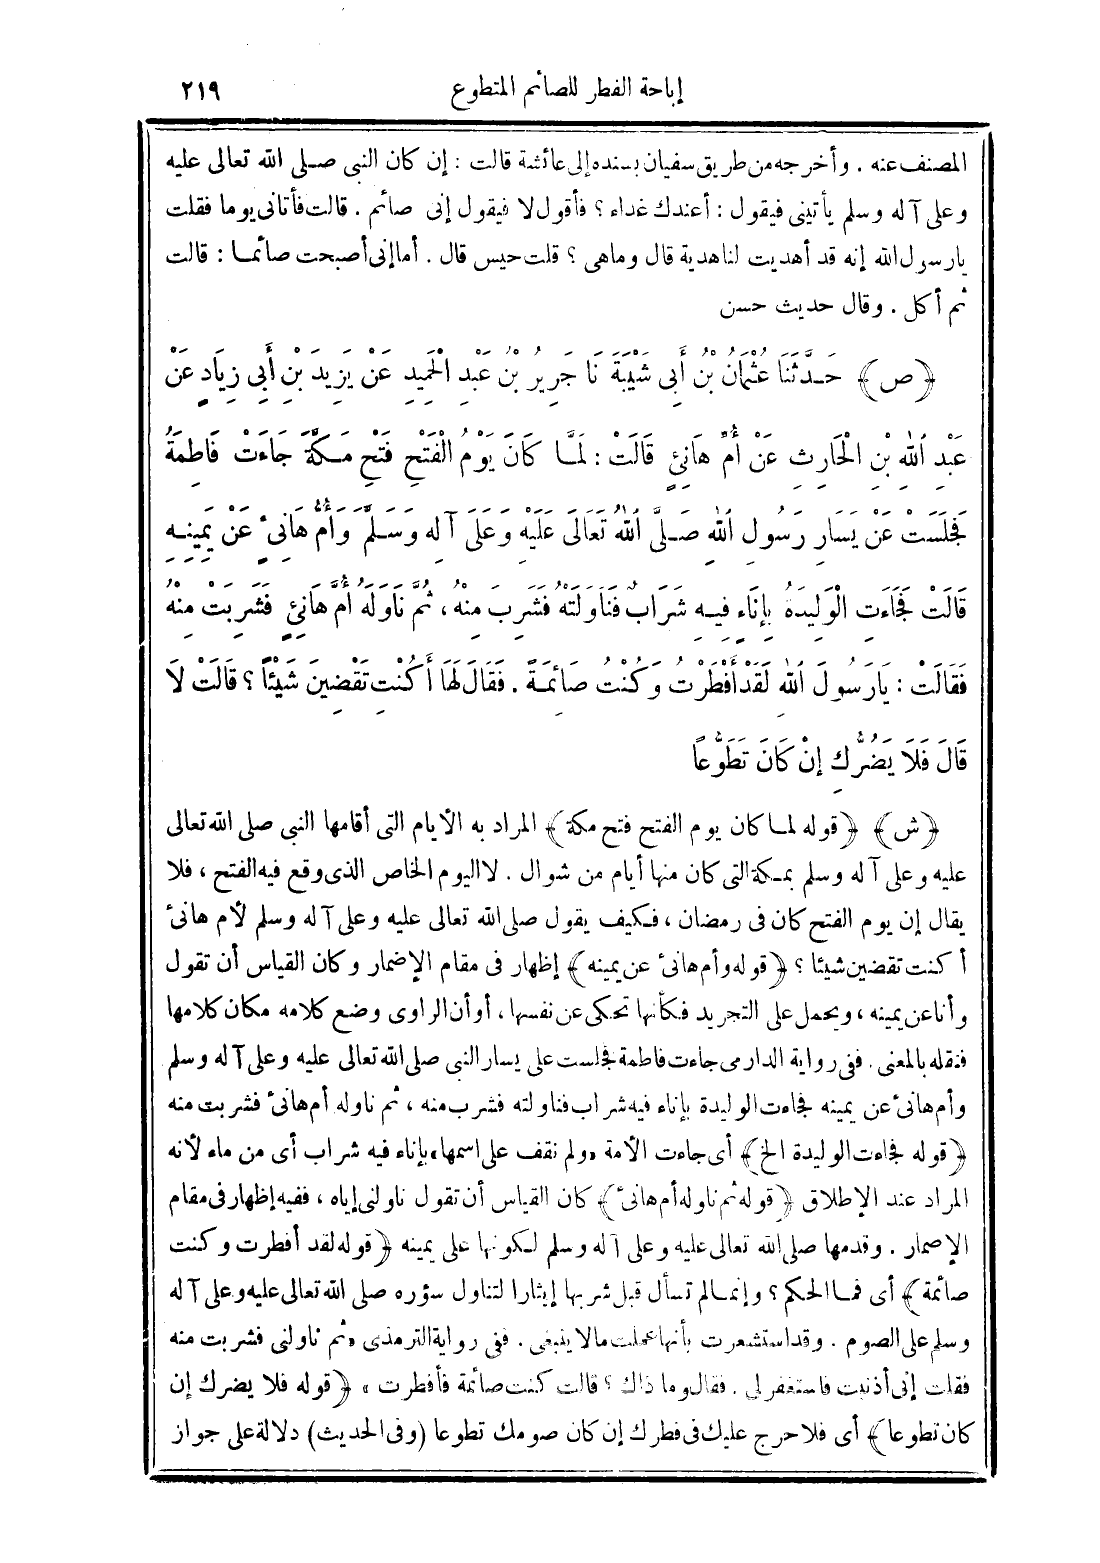 إباحة الفطر للصائم المتطوع ٢١٩
المصنف عنه . وأخرجه من طريق سفيان بسنده إلى عائشة قالت : إن كان النبى صلى الله تعالى عليه
وعلى آله وسلم يأتينى فيقول : أعندك غداء ؟ فأقول لا فيقول إنى صائم . قالت فأتانى يوما فقلت
يا رسول الله إنه قد أهديت لنا هدية قال وما هى ؟ قلت حيس قال . أما إنى أصبحت صائما : قالت
ثم أكل . وقال حديث حسن
﴿ص﴾ حَدَّثَنَا عُثْمَانُ بْنُ أَبِى شَيْبَةَ نَا جَرِيرُ بْنُ عَبْدِ الْحَمِيدِ عَنْ يَزِيدَ بْنِ أَبِى زِيَادٍ عَنْ
عَبْدِ اللهِ بْنِ الْحَارِثِ عَنْ أُمِّ هَانِئٍ قَالَتْ : لَمَّا كَانَ يَوْمُ الْفَتْحِ فَتْحِ مَكَّةَ جَاءَتْ فَاطِمَةُ
فَجَلَسَتْ عَنْ يَسَارِ رَسُولِ اللهِ صَلَّى اللهُ تَعَالَى عَلَيْهِ وَعَلَى آلِهِ وَسَلَّمَ وَأُمُّ هَانِئٍ عَنْ يَمِينِهِ
قَالَتْ فَجَاءَتِ الْوَلِيدَةُ بِإِنَاءٍ فِيهِ شَرَابٌ فَنَاوَلَتْهُ فَشَرِبَ مِنْهُ ، ثُمَّ نَاوَلَهُ أُمَّ هَانِئٍ فَشَرِبَتْ مِنْهُ
فَقَالَتْ : يَا رَسُولَ اللهِ لَقَدْ أَفْطَرْتُ وَكُنْتُ صَائِمَةً . فَقَالَ لَهَا أَكُنْتِ تَقْضِينَ شَيْئًا ؟ قَالَتْ لَا
قَالَ فَلَا يَضُرُّكِ إِنْ كَانَ تَطَوُّعًا
﴿ش﴾ ﴿قوله لما كان يوم الفتح فتح مكة﴾ المراد به الأيام التى أقامها النبى صلى الله تعالى
عليه وعلى آله وسلم بمكة التى كان منها أيام من شوال . لا اليوم الخاص الذى وقع فيه الفتح ، فلا
يقال إن يوم الفتح كان فى رمضان ، فكيف يقول صلى الله تعالى عليه وعلى آله وسلم لأم هانئ
أكنت تقضين شيئا ؟ ﴿قوله وأم هانئ عن يمينه﴾ إظهار فى مقام الإضمار وكان القياس أن تقول
وأنا عن يمينه ، ويحمل على التجريد فكأنها تحكى عن نفسها ، أو أن الراوى وضع كلامه مكان كلامها
فنقله بالمعنى . ففى رواية الدارمى جاءت فاطمة فجلست على يسار النبى صلى الله تعالى عليه وعلى آله وسلم
وأم هانئ عن يمينه فجاءت الوليدة بإناء فيه شراب فناولته فشرب منه ، ثم ناوله أم هانئ فشربت منه
﴿قوله فجاءت الوليدة الخ﴾ أى جاءت الأمة «ولم نقف على اسمها» بإناء فيه شراب أى من ماء لأنه
المراد عند الإطلاق ﴿قوله ثم ناوله أم هانئ﴾ كان القياس أن تقول ناولنى إياه ، ففيه إظهار فى مقام
الإضمار . وقدمها صلى الله تعالى عليه وعلى آله وسلم لكونها على يمينه ﴿قوله لقد أفطرت وكنت
صائمة﴾ أى فما الحكم ؟ وإنما لم تسأل قبل شربها إيثارا لتناول سؤره صلى الله تعالى عليه وعلى آله
وسلم على الصوم . وقد استشعرت بأنها عملت ما لا ينبغى . ففى رواية الترمذى «ثم ناولنى فشربت منه
فقلت إنى أذنبت فاستغفر لى . فقال وما ذاك ؟ قالت كنت صائمة فأفطرت » ﴿قوله فلا يضرك إن
كان تطوعا﴾ أى فلا حرج عليك فى فطرك إن كان صومك تطوعا (وفى الحديث) دلالة على جواز